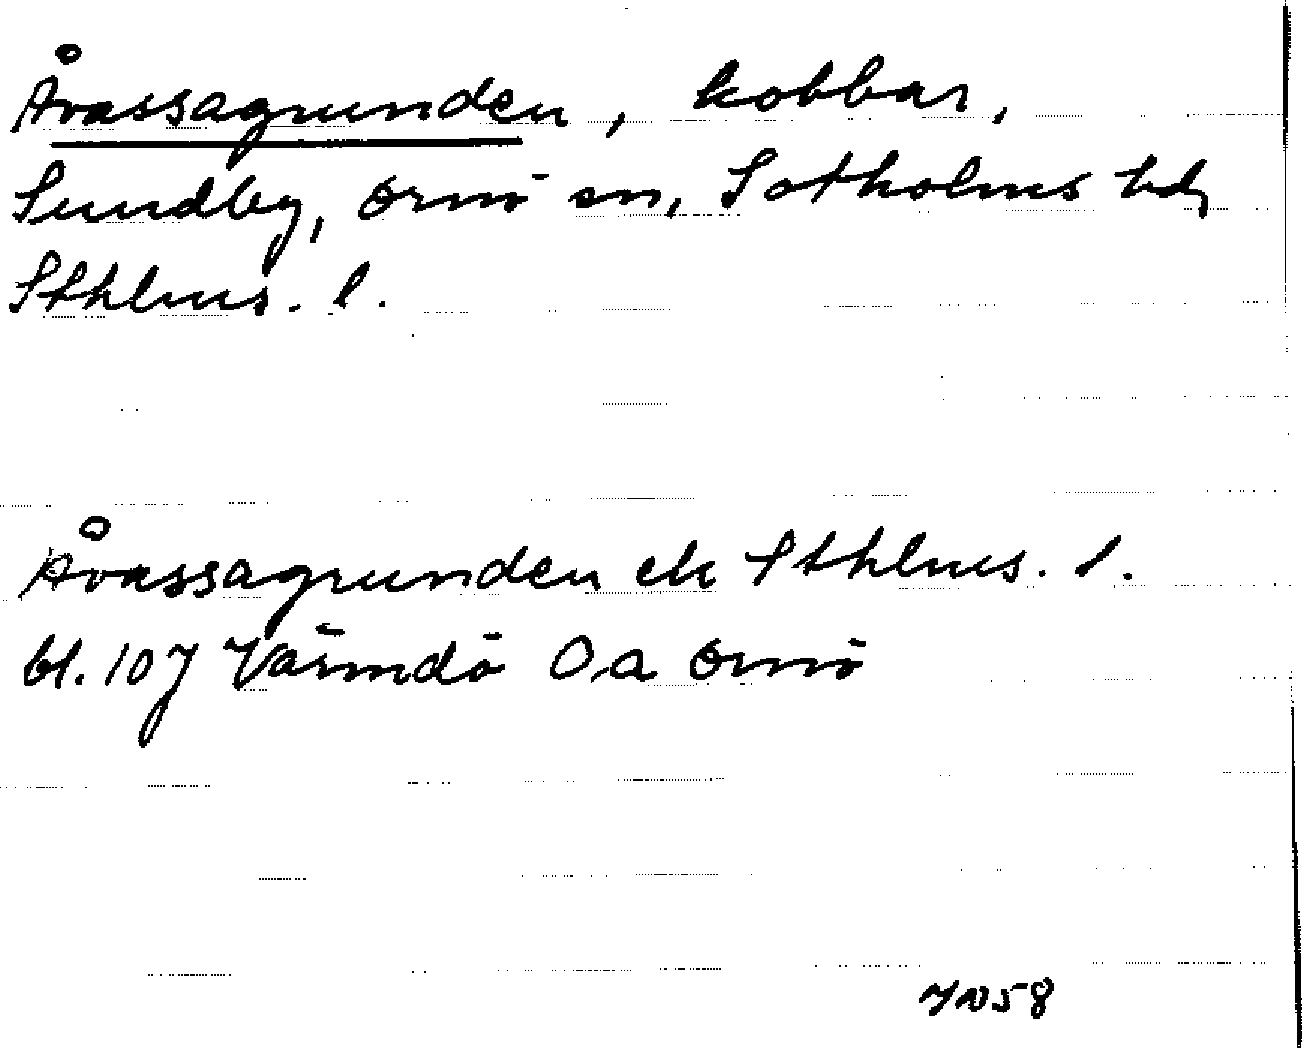 Åvassagrunden, kobbar,
Sundby, Ornö sn, Sotholms hd,
Sthlms. l.
Åvassagrunden ek Sthlms. l.
bl. 107 Värmdö Oa Ornö
58